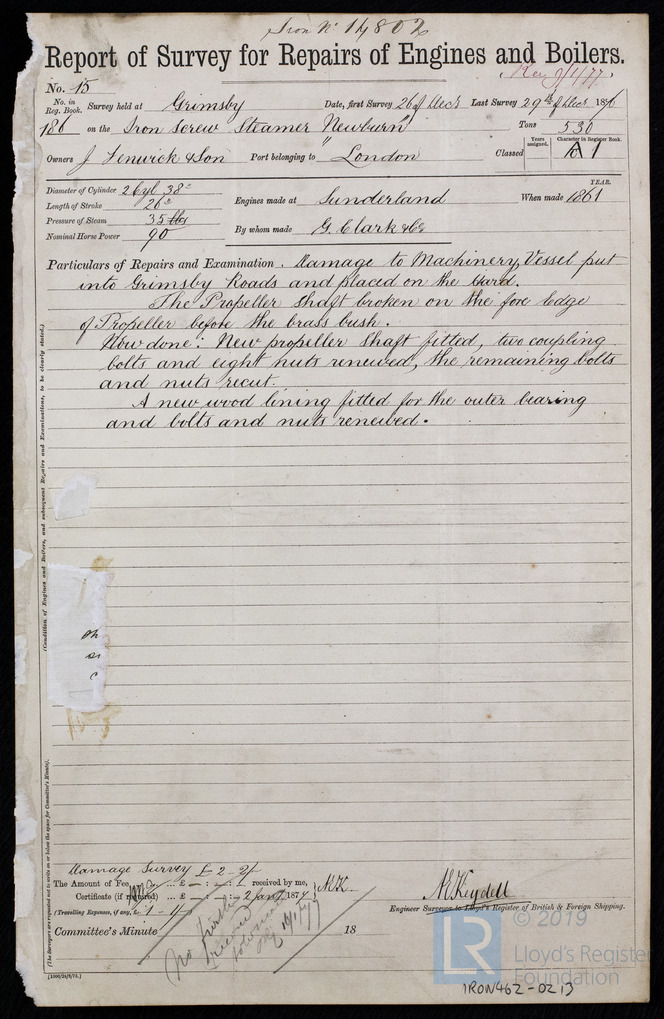 Iron No 14802
Report of Survey for Repairs of Engines and Boilers.
Rec 9/1/77
No. 15
No. in Reg. Book. Survey held at Grimsby Date, first Survey 26 of Decr Last Survey 29th of Decr 1876
186 on the Iron Screw Steamer "Newburn" Tons 530
Owners J Fenwick & Son Port belonging to London Classed Years assigned. Character in Register Book. A 1
Diameter of Cylinder 26 38 Engines made at Sunderland When made 1861 YEAR.
Length of Stroke 26
Pressure of Steam 35 lbs By whom made G. Clark & Co
Nominal Horse Power 90
Particulars of Repairs and Examination. Damage to Machinery, Vessel put
into Grimsby Roads and placed on the Hard.
The Propeller Shaft broken on the fore edge
of Propeller before the brass bush.
Now done: New propeller shaft fitted, two coupling
bolts and eight nuts renewed, the remaining bolts
and nuts recut.
A new wood lining fitted for the outer bearing
and bolts and nuts renewed.
(Condition of Engines and Boilers, and subsequent Repairs and Examinations, to be clearly stated.)
(The Surveyors are requested not to write on or below the space for Committee's Minute).
Damage Survey £ 2-2/-
The Amount of Fee ... £ - : - : - received by me,
Certificate (if required) ... £ - : - : - 2 Jany 1877
(Travelling Expenses, if any, £ 1-1/-
Engineer Surveyor to Lloyd's Register of British & Foreign Shipping.
Committee's Minute 18
No further
16/1/77
© 2019
LR
Lloyd's Register
Foundation
IRON462-0213